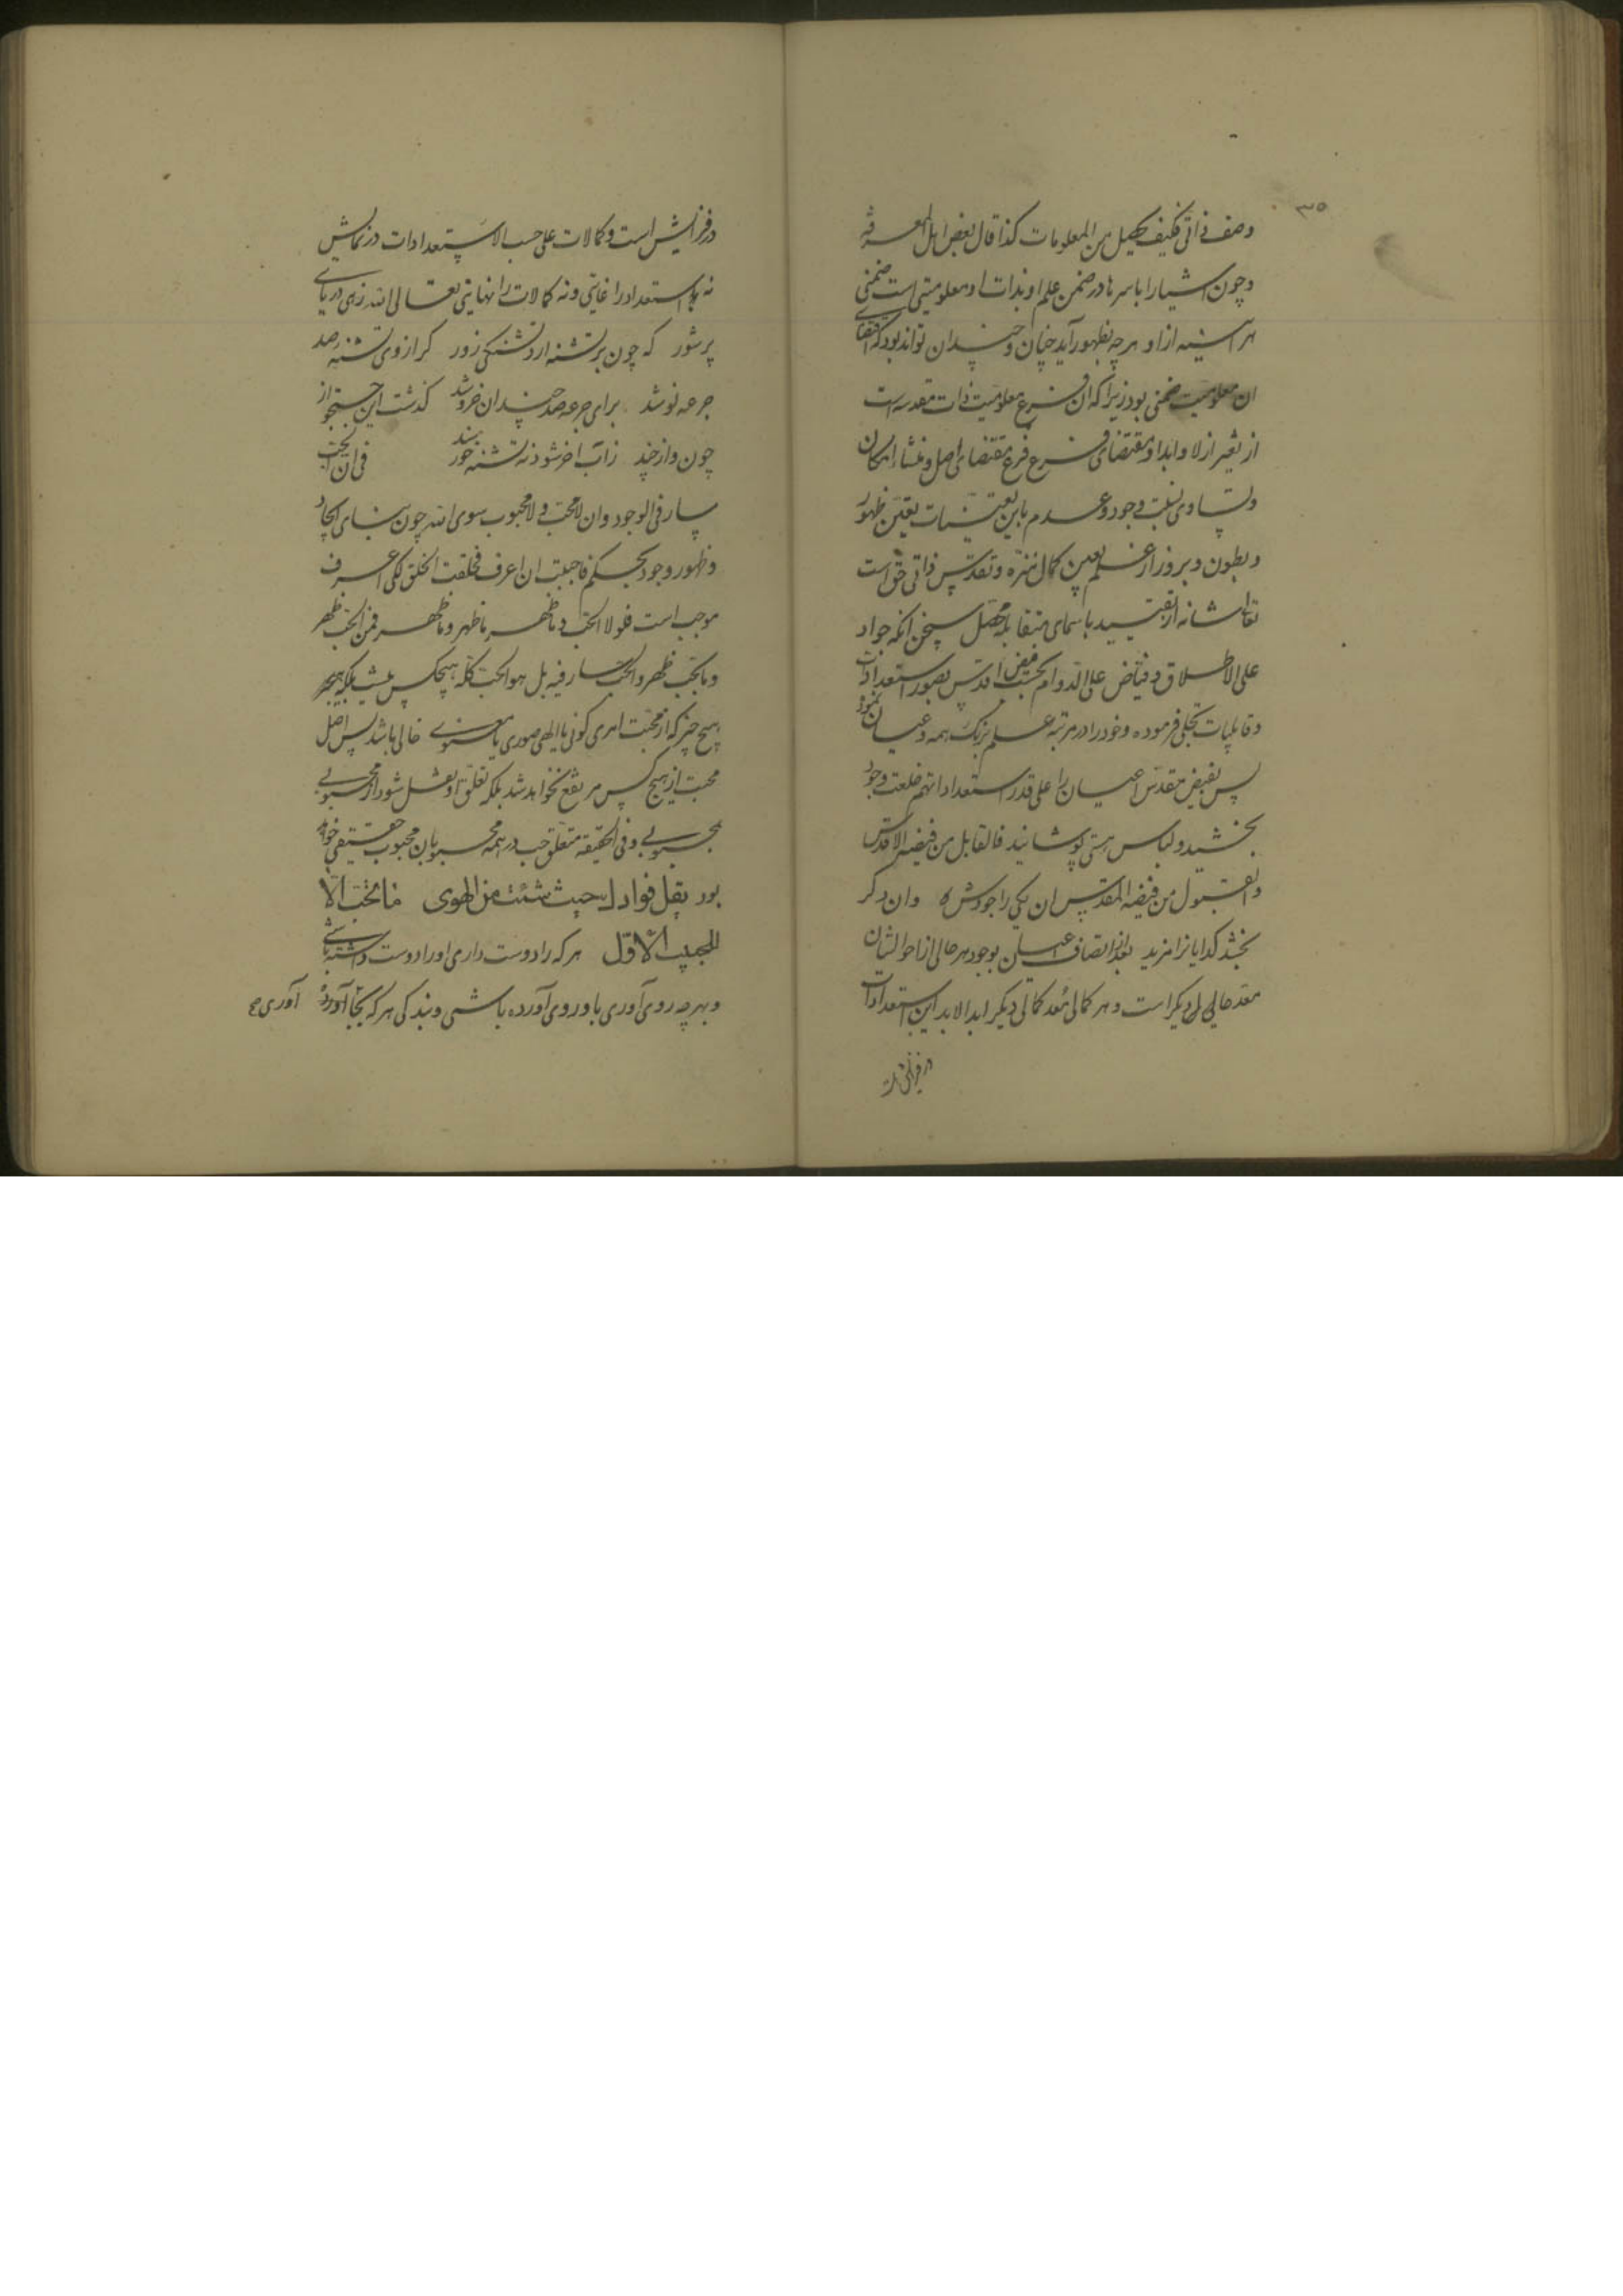 ۳۵
وصف ذاتی فکیف یحصل من المعلومات کذا قال بعض اهل المعرفه
و چون اشیا را باسرها در ضمن علم او بذات او معلومیتی است ضمنی
هر آینه از او هر چه بظهور آید چنان و چندان تواند بود که اقتضای
ان معلومیت ضمنی بود زیرا که ان فرع معلومیت ذات مقدسه است
از تغیر ازلا و ابدا و مقتضای فرع فرع مقتضای اصل و منشاء امکان
و تساوی نسبت وجود و عدم باین تعینات تعین ظهور
و بطون و بروز از علم بعین کمال تنزه و تقدس ذاتی حق است
تعالی شانه از تقیید باسمای متقابله محصل سخن آنکه جواد
علی الاطلاق و فیاض علی الدوام بحسب فیض اقدس بصور استعدادات
و قابلیات تجلی فرموده و خود را در مرتبه علم برنک همه اعیان نمود
پس بفیض مقدس اعیان را علی قدر استعداداتهم خلعت وجود
بخشید و لباس هستی پوشانید فالقابل من فیضه الاقدس
و القبول من فیضه المقدس ان یکی را جودش که وان دکر
بخشد کدایانرا مزید بعد از اتصاف اعیان بوجود هر حالی از احوالشان
معد حالی دیکر است و هر کمالی معد کمالی دیکر ابد الابد این استعدادات
در فزایش است
در فزایش است و کمالات علی حسب الاستعدادات در نمایش
نه استعداد را غایتی و نه کمالات را نهایتی تعالی الله زهی دریای
پر شور که چون بر تشنه ارد تشنکی زور کر از وی تشنه صد
جرعه نوشد برای جرعه صد چندان خروشد کذشت این جستجو از
چون و از چند ز آب اخر شود نه تشنه خورسند فی ان الحب
سار فی الوجود وان لا محب و لا محبوب سوی الله چون بنای ایجاد
و ظهور وجود بحکم فاحببت ان اعرف فخلقت الخلق لکی اعرف
موجب است فلولا الحب ما ظهر ما ظهر و ما ظهر فمن الحب ظهر
و بالحب ظهر و الحب سار فیه بل هو الحب کله هیچکس نیست بلکه
هیچ چیز که از محبت امری کونی یا الهی صوری یا معنوی خالی باشد پس اصل
محبت از هیچ کس مرتفع نخواهد شد بلکه تعلق او نقل شود از محبوبی
بمحبوبی و فی الحقیقه متعلق حب در همه محبوبان محبوب حقیقی خواهد
بود نقل فوادك حیث شئت من الهوی ما الحب الا
للحبیب الاول هر که را دوست داری او را دوست داشته باشی
و بهر چه روی آوری باو روی آورده باشی و بندکی هر که بجا آوری
آوری صح